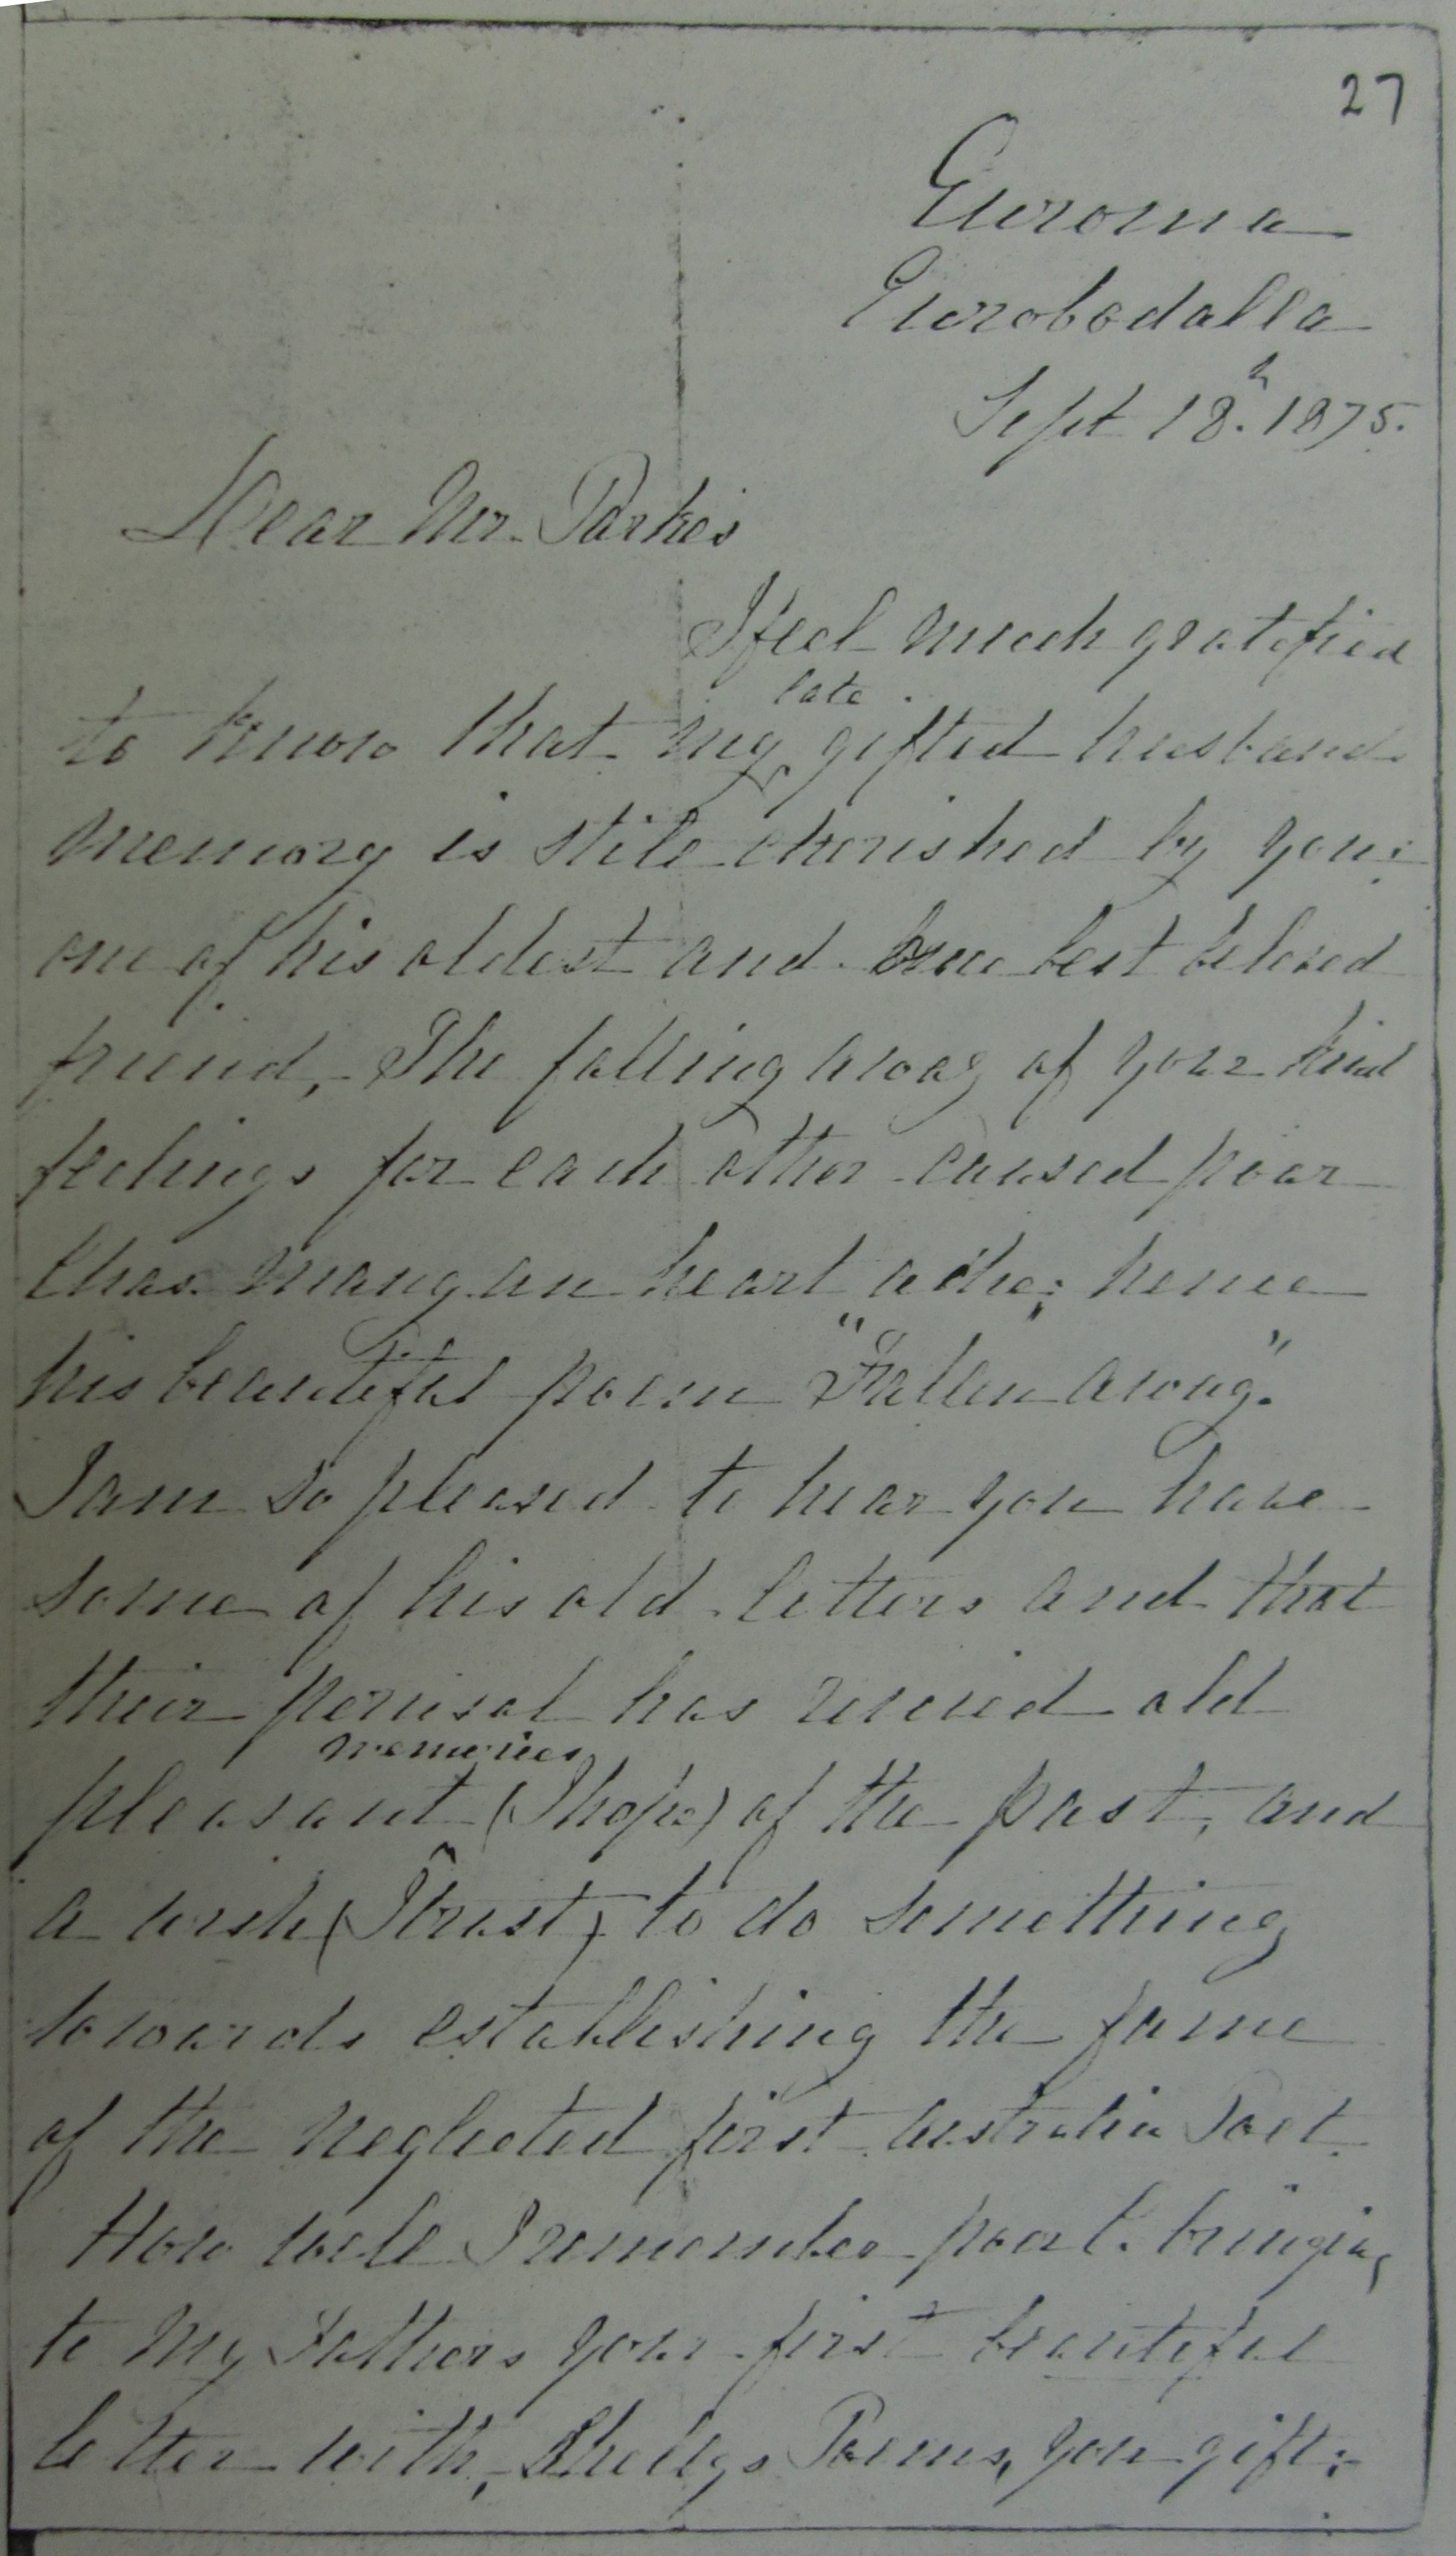 27
Euroma
Eurobodalla
Sept 18.h 1875.
Dear Mr. Parkes
I feel much gratified
to know that my late gifted husband
memory is still cherished by you;
one of his oldest and best beloved
friend, The falling away of your kind
feelings for each other caused poor
Chas. many an heart ache; hence
his beautiful poem "Fallen away."
I am so pleased to hear you have
some of his old letters and that
their perusal has revived old
pleasant memories (I hope) of the past, and
a wish (I trust) to do something
towards establishing the fame
of the neglected first Australia Poet.
How well I remember poor C. bringing
to my Fathers your first beautiful
letter with, Shellys Poems, you gift;